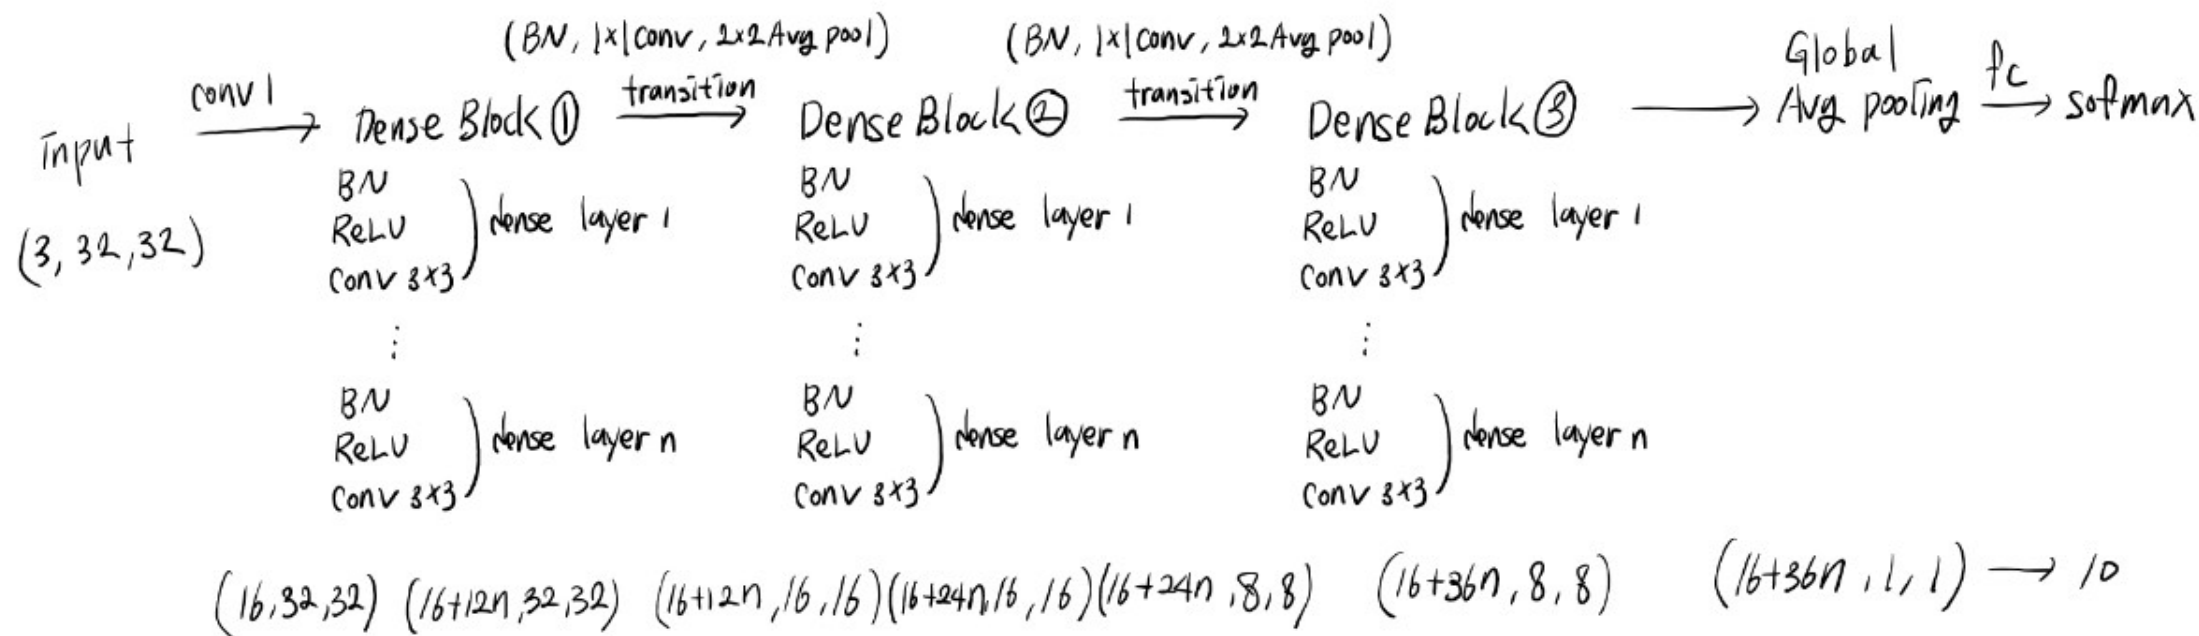 (BN, 1x1 Conv, 2x2 Avg pool) (BN, 1x1 Conv, 2x2 Avg pool)
input conv1 Dense Block ① transition Dense Block ② transition Dense Block ③ Global Avg pooling fc softmax
(3, 32, 32)
BN
ReLU
Conv 3x3
dense layer 1
⋮
BN
ReLU
Conv 3x3
dense layer n
BN
ReLU
Conv 3x3
dense layer 1
⋮
BN
ReLU
Conv 3x3
dense layer n
BN
ReLU
Conv 3x3
dense layer 1
⋮
BN
ReLU
Conv 3x3
dense layer n
(16, 32, 32) (16+12n, 32, 32) (16+12n, 16, 16) (16+24n, 16, 16) (16+24n, 8, 8) (16+36n, 8, 8) (16+36n, 1, 1) → 10